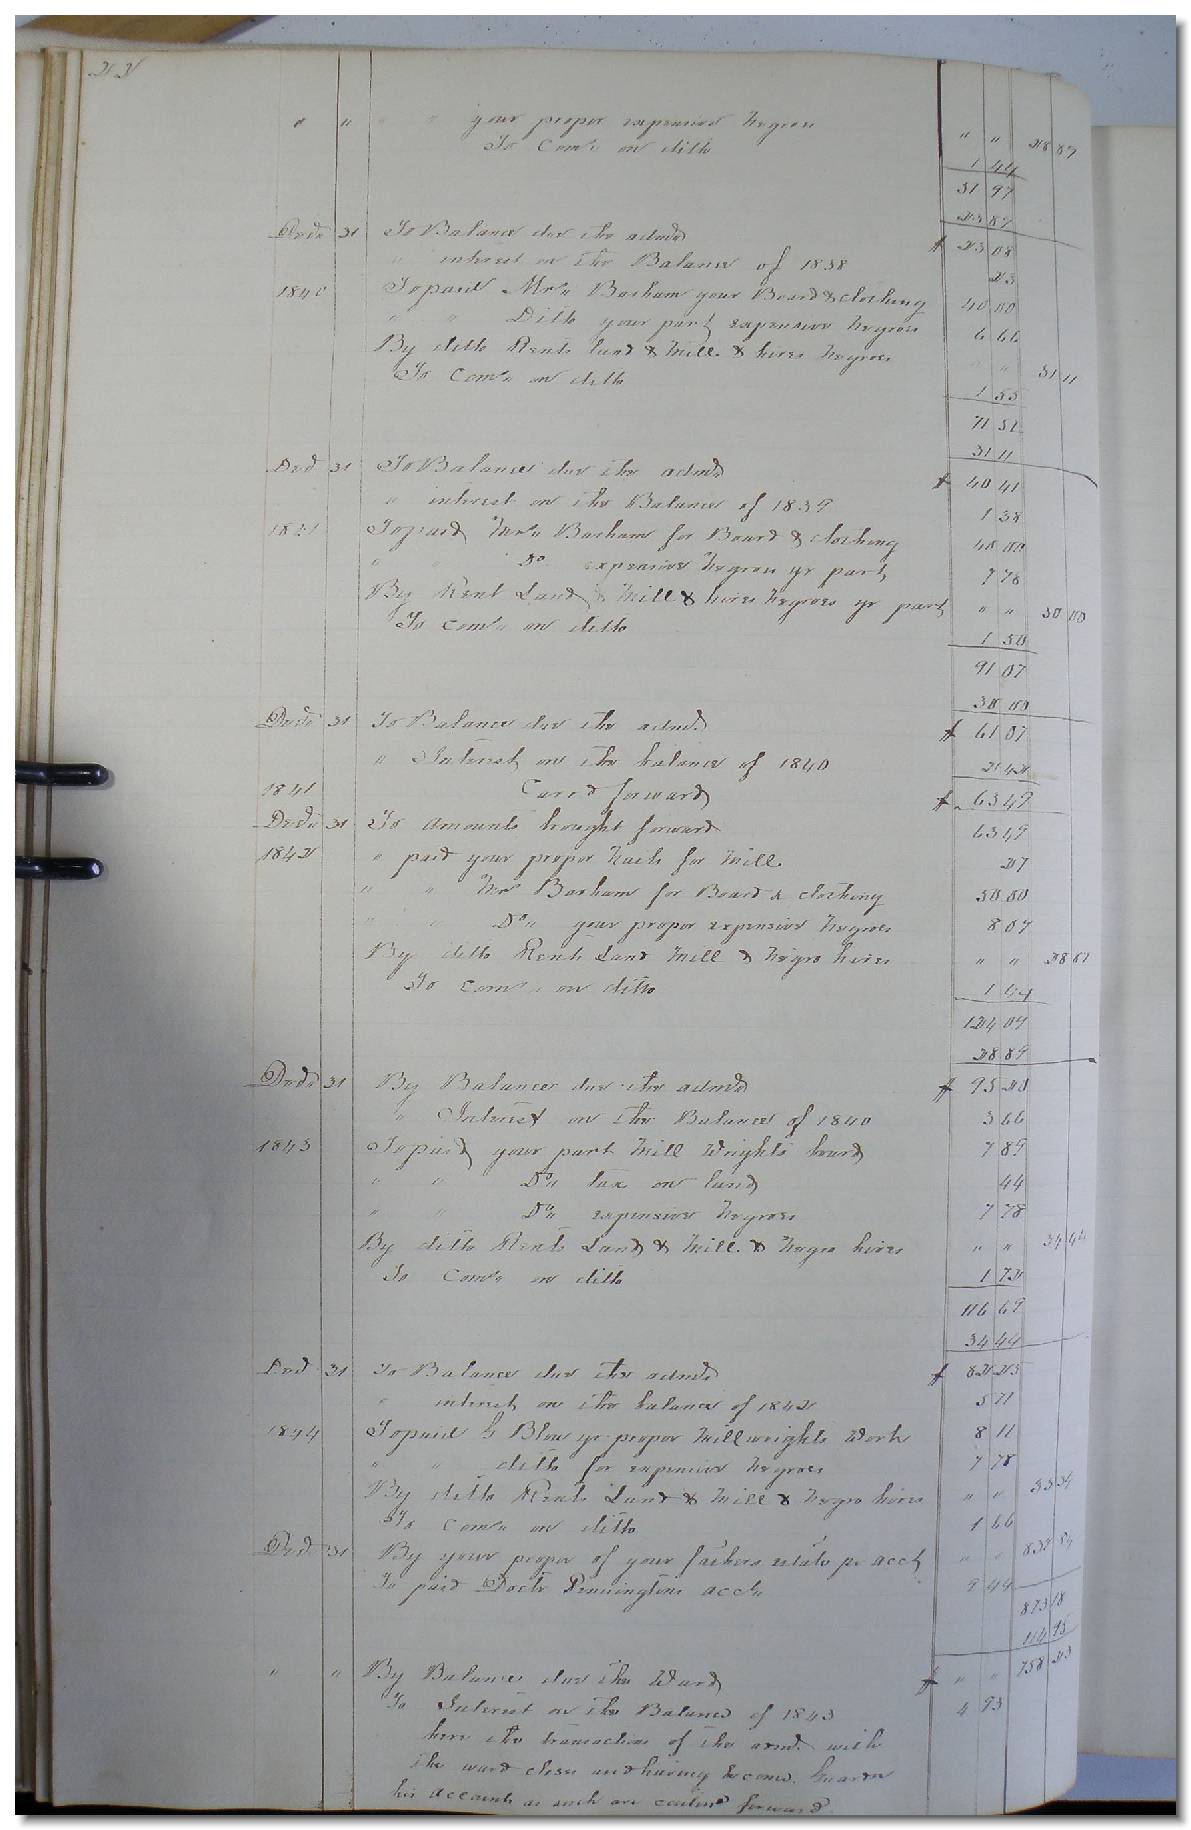 22
" " " " your propor expenses Negroes " " 28 87
To Coms. on ditto 1 44
31 97
28 87
Decr 31 To Balance due the admr $ 23 08
" interest on the Balance of 1838 23
1840 To paid Mrs. Barham your Board & clothing 40 00
" " Ditto your part expenses Negroes 6 66
By ditto Rents land & Mill & hires Negroes " " 31 11
To Coms. on ditto 1 55
71 52
31 11
Decr 31 To Balance due the admr $ 40 41
" interest on the Balance of 1839 1 38
1841 To paid Mrs. Barham for Board & clothing 40 00
" " Do. expenses Negroes yr part 7 78
By Rent Land & Mill & hires Negroes yr part " " 30 00
To Coms. on ditto 1 50
91 07
30 00
Decr 31 To Balance due the admr $ 61 07
" Interest on the balance of 1840 2 42
1841 Card forward $ 63 49
Decr 31 To Amounts bought forward 63 49
1842 " paid your propor Nails for Mill 27
" " Mrs Barham for Board & clothing 50 00
" " Do. your propor expenses Negroes 8 89
By ditto Rents Land Mill & Negro hires " " 28 89
To Coms. on ditto 1 44
124 09
28 89
Decr 31 By Balance due the admr $ 95 20
" Interest on the Balance of 1840 3 66
1843 To paid your part Mill Wrights board 7 89
" " Do. tax on land 44
" " Do. expenses Negroes 7 78
By ditto Rents Land & Mill & Negro hires " " 34 44
To Coms. on ditto 1 72
116 69
34 44
Decr 31 To Balance due the admr $ 82 25
" interest on the balance of 1842 5 71
1844 To paid G Blow yr propor Millwrights Work 8 11
" " ditto for expenses Negroes 7 78
By ditto Rents Land & Mill & Negro hires " " 33 34
To Coms. on ditto 1 66
Decr 31 By your propor of your fathers estate pr acct " "
To paid Doctr Penningtons acct. 9 44
873 18
114 95
" " By Balance due the Ward $ " " 758 23
To Interest on the Balance of 1843 4 93
here the transactions of the admr. with
the ward close and having become Guardn
his accounts as such are contind forward